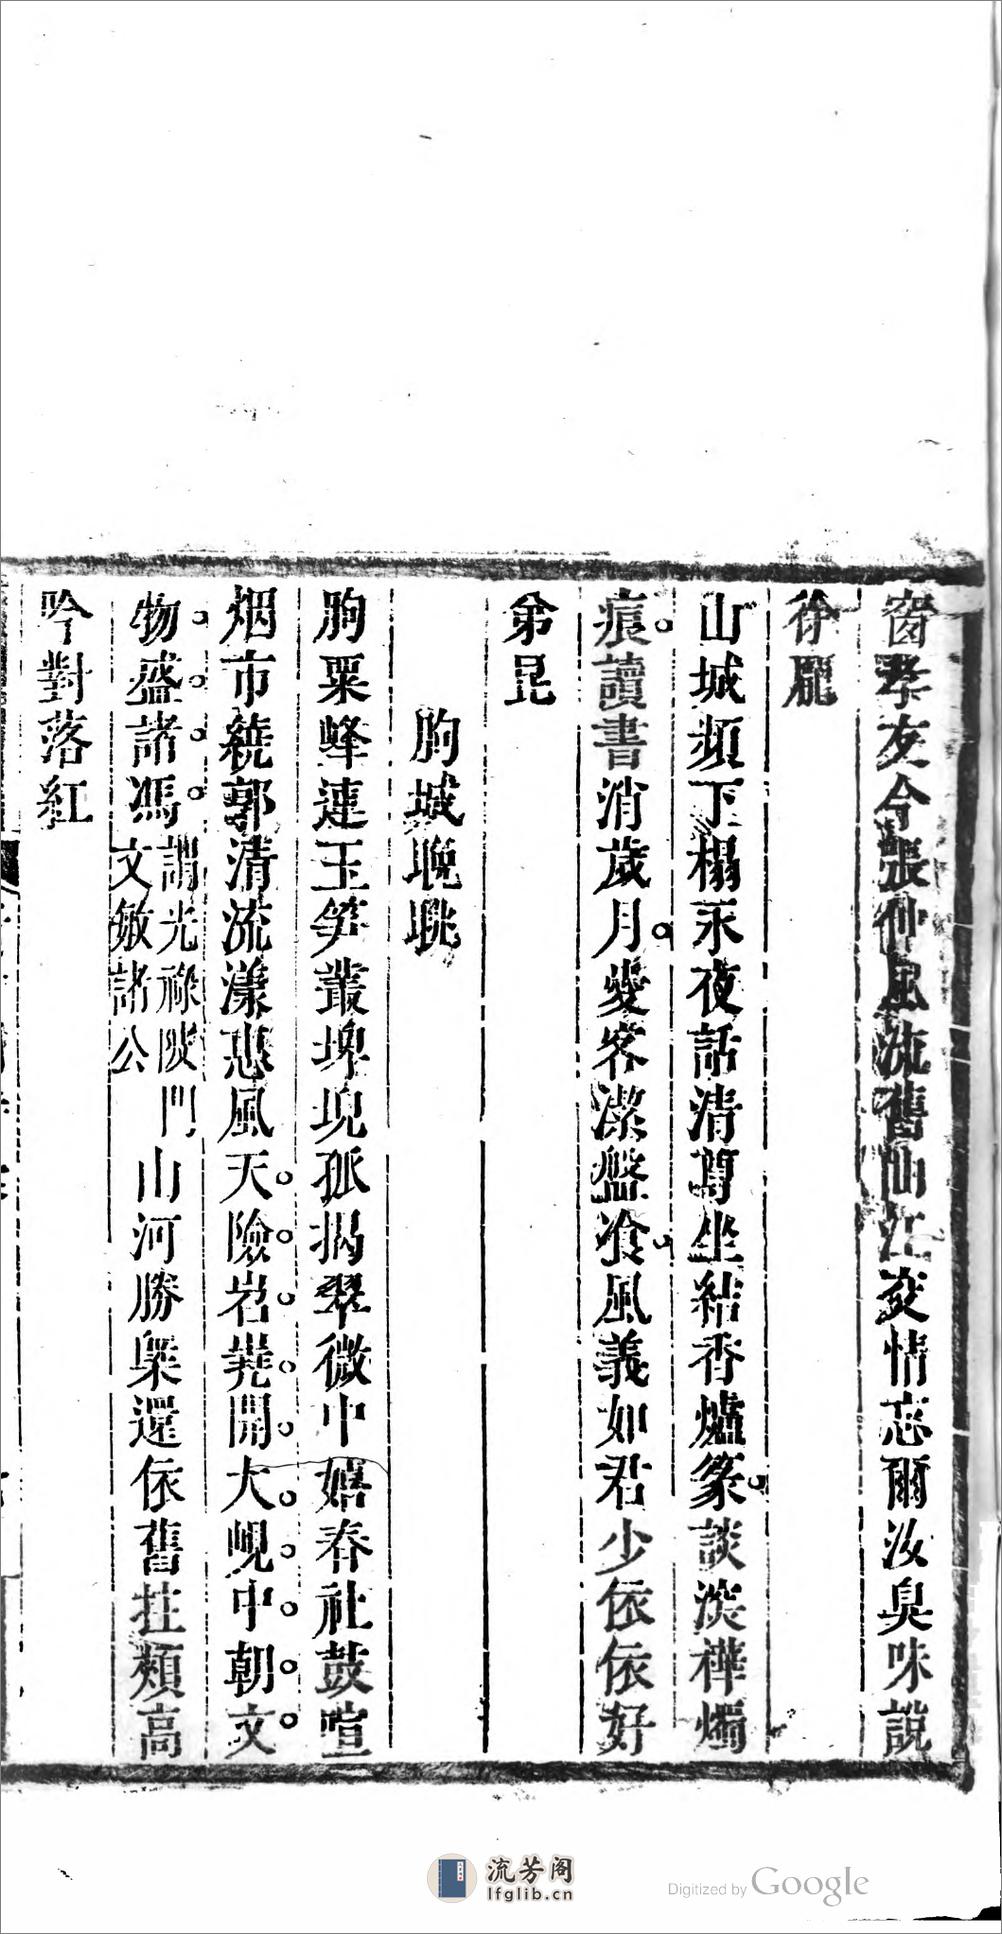 窗孝友今張仲風流舊仙江交情忘爾汝臭味說
徐龐
山城頻下榻永夜話清尊坐結香爐篆談深樺燭
痕讀書消歲月愛客潔盤飧風義如君少依依好
弟昆
朐城晚眺
朐粟峰連玉笋叢埤堄孤揭翠微中嬉春社鼓喧
烟市繞郭清流漾惠風天險岩嶤開大峴中朝文
物盛諸馮謂光祿陂門文敏諸公山河勝槩還依舊拄頰高
吟對落紅
流芳阁
lfglib.cn
Digitized by Google